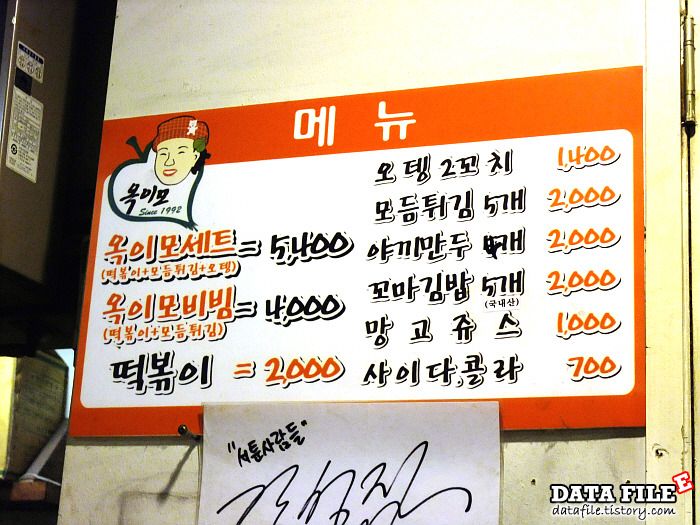 메뉴
옥이모
Since 1992
옥이모세트 = 5,400
(떡볶이+모듬튀김+오뎅)
옥이모비빔 = 4,000
(떡볶이+모듬튀김)
떡볶이 = 2,000
오뎅 2꼬치 1,400
모듬튀김 5개 2,000
야끼만두 개 2,000
꼬마김밥 5개 2,000
(국내산)
망고쥬스 1,000
사이다,콜라 700
"서툰사람들"
DATA FILE
datafile.tistory.com